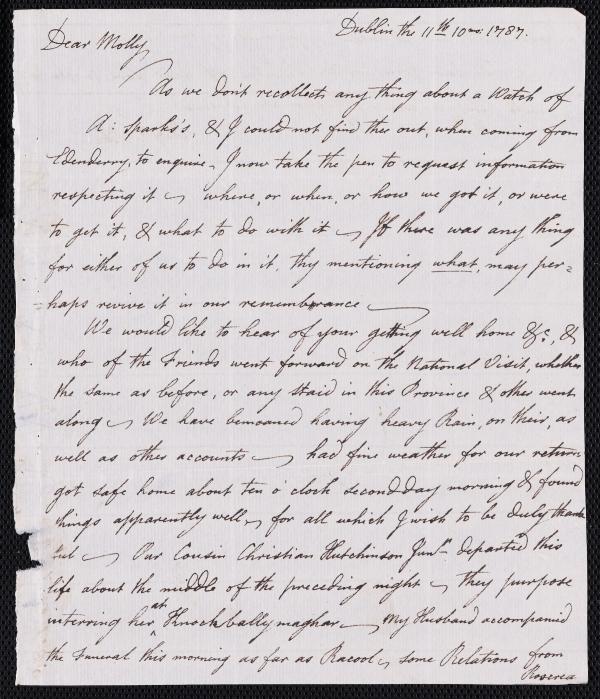 Dublin the 11th 10mo: 1787.
Dear Molly
As we don't recollect any thing about a Watch of
A: Sparks's, & I could not find thee out, when coming from
Edenderry, to enquire, I now take the pen to request information
respecting it – where, or when, or how we got it, or were
to get it, & what to do with it – If there was any thing
for either of us to do in it, thy mentioning what, may per=
=haps revive it in our remembrance –
We would like to hear of your getting well home &c, &
who of the Friends went forward on the National Visit, whether
the same as before, or any staid in this Province & other went
along – We have bemoaned having heavy Rain, on their, as
well as other accounts – had fine weather for our return
got safe home about ten o'clock second day morning & found
things apparently well, for all which I wish to be duly thank
ful – Our Cousin Christian Hutchinson Junr departed this
life about the middle of the preceding night – they purpose
interring her at Knockballymaghar – My Husband accompanied
the Funeral this morning as far as Racool, some Relations from
Roscrea